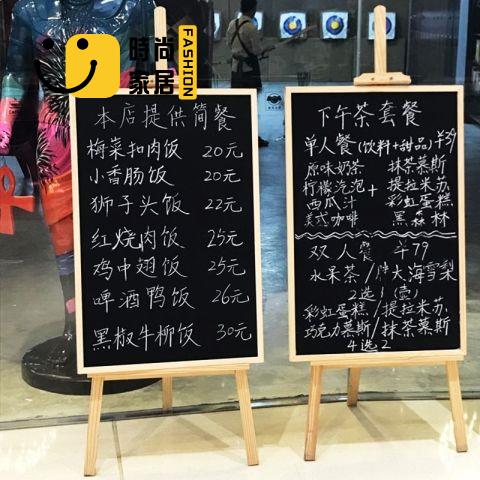 時尚
家居
FASHION
本店提供简餐
梅菜扣肉饭 20元
小香肠饭 20元
狮子头饭 22元
红烧肉饭 25元
鸡中翅饭 25元
啤酒鸭饭 26元
黑椒牛柳饭 30元
下午茶套餐
单人餐(饮料+甜品)¥39
原味奶茶 抹茶慕斯
柠檬汽泡+提拉米苏
西瓜汁 彩虹蛋糕
美式咖啡 黑森林
双人餐 ¥79
水果茶/胖大海雪梨
2选1(壶)
彩虹蛋糕/提拉米苏
巧克力慕斯/抹茶慕斯
4选2